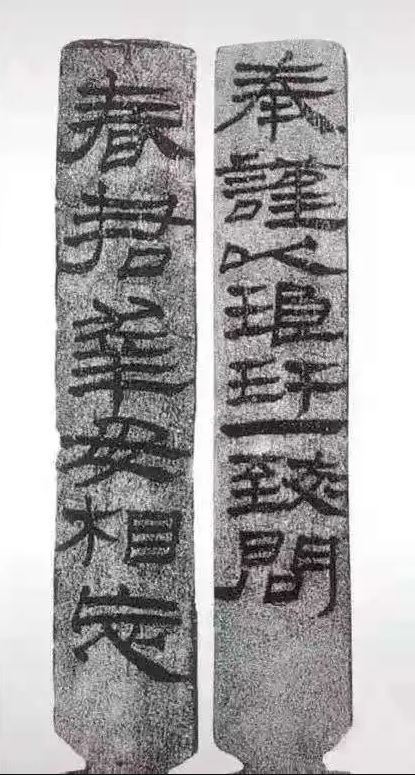 奉謹以琅玕一致問
春君幸毋相忘